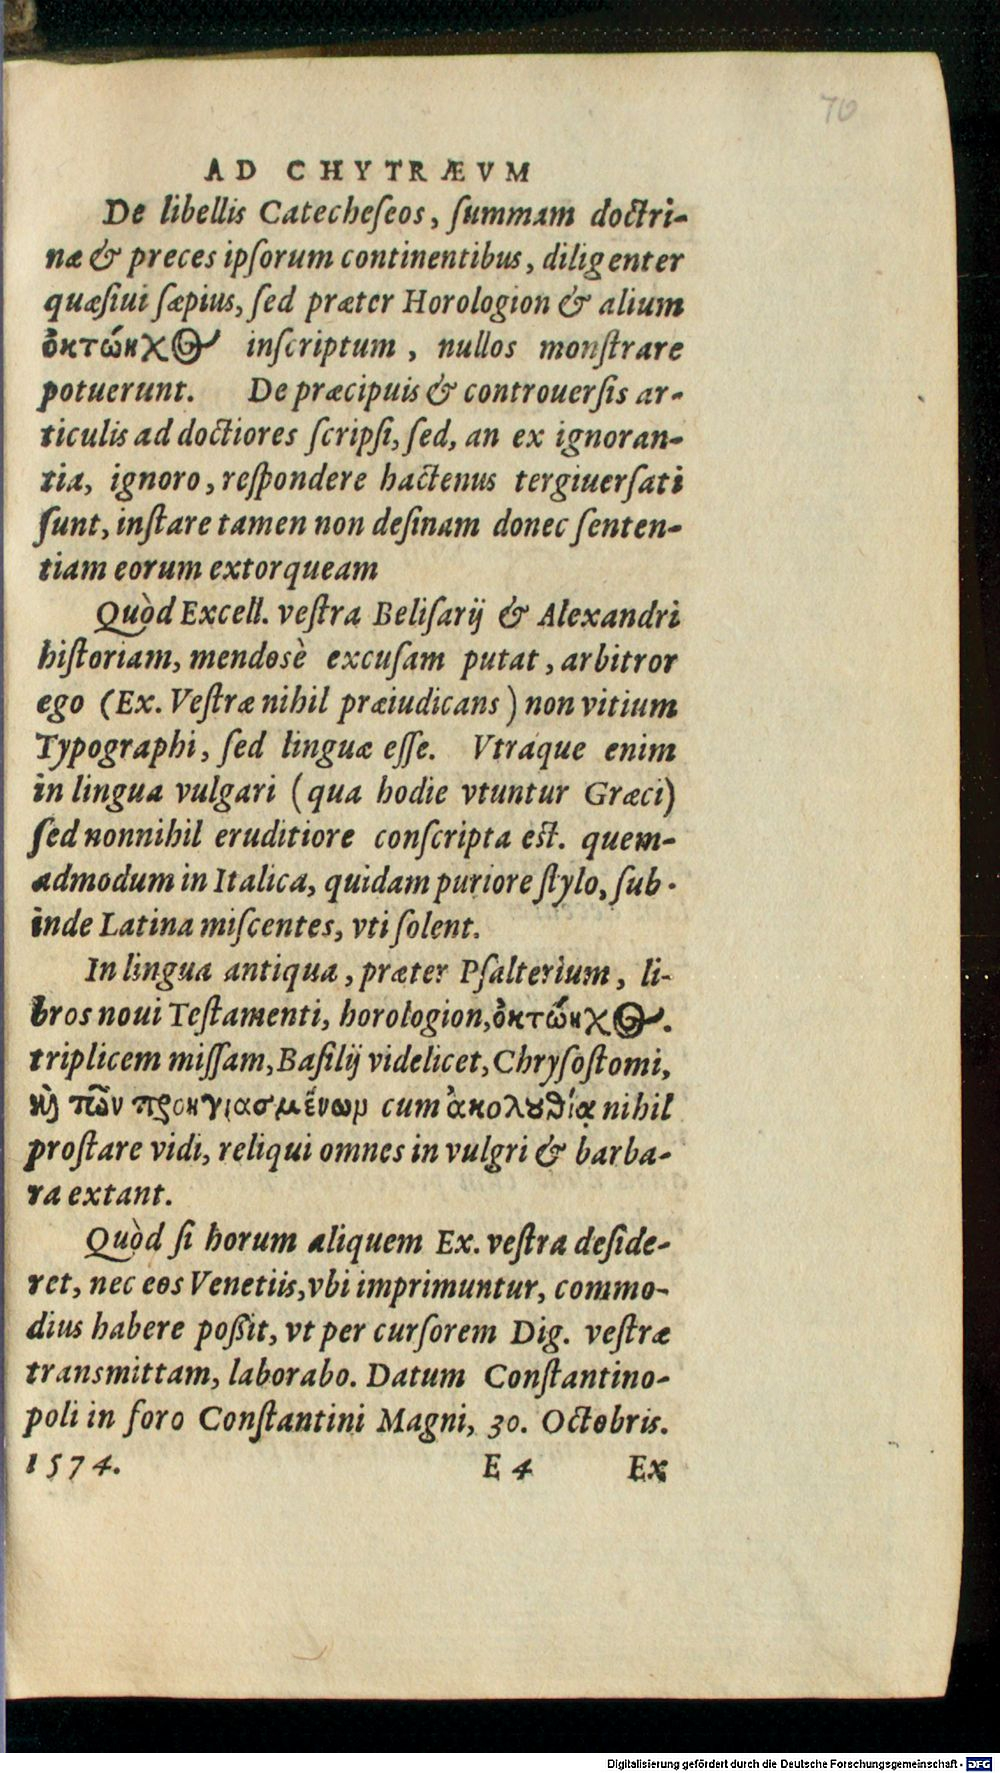 70
AD CHYTRÆVM
De libellis Catecheſeos, ſummam doctri-
næ & preces ipſorum continentibus, diligenter
quæſiui ſæpius, ſed præter Horologion & alium
ὀκτώηχος inſcriptum, nullos monſtrare
potuerunt. De præcipuis & controuerſis ar-
ticulis ad doctiores ſcripſi, ſed, an ex ignoran-
tia, ignoro, reſpondere hactenus tergiuerſati
ſunt, inſtare tamen non deſinam donec ſenten-
tiam eorum extorqueam
Quòd Excell. veſtra Beliſarij & Alexandri
hiſtoriam, mendosè excuſam putat, arbitror
ego (Ex. Veſtræ nihil præiudicans) non vitium
Typographi, ſed linguæ eſſe. Vtraque enim
in lingua vulgari (qua hodie vtuntur Græci)
ſed nonnihil eruditiore conſcripta eſt. quem-
admodum in Italica, quidam puriore ſtylo, ſub-
inde Latina miſcentes, vti ſolent.
In lingua antiqua, præter Pſalterium, li-
bros noui Teſtamenti, horologion, ὀκτώηχος.
triplicem miſſam, Baſilij videlicet, Chryſoſtomi,
καὶ τῶν προηγιασμένων cum ἀκολουθίᾳ nihil
proſtare vidi, reliqui omnes in vulgri & barba-
ra extant.
Quòd ſi horum aliquem Ex. veſtra deſide-
ret, nec eos Venetiis, vbi imprimuntur, commo-
dius habere poßit, vt per curſorem Dig. veſtræ
transmittam, laborabo. Datum Conſtantino-
poli in foro Conſtantini Magni, 30. Octobris.
1574. E 4 Ex
Digitalisierung gefördert durch die Deutsche Forschungsgemeinschaft - DFG